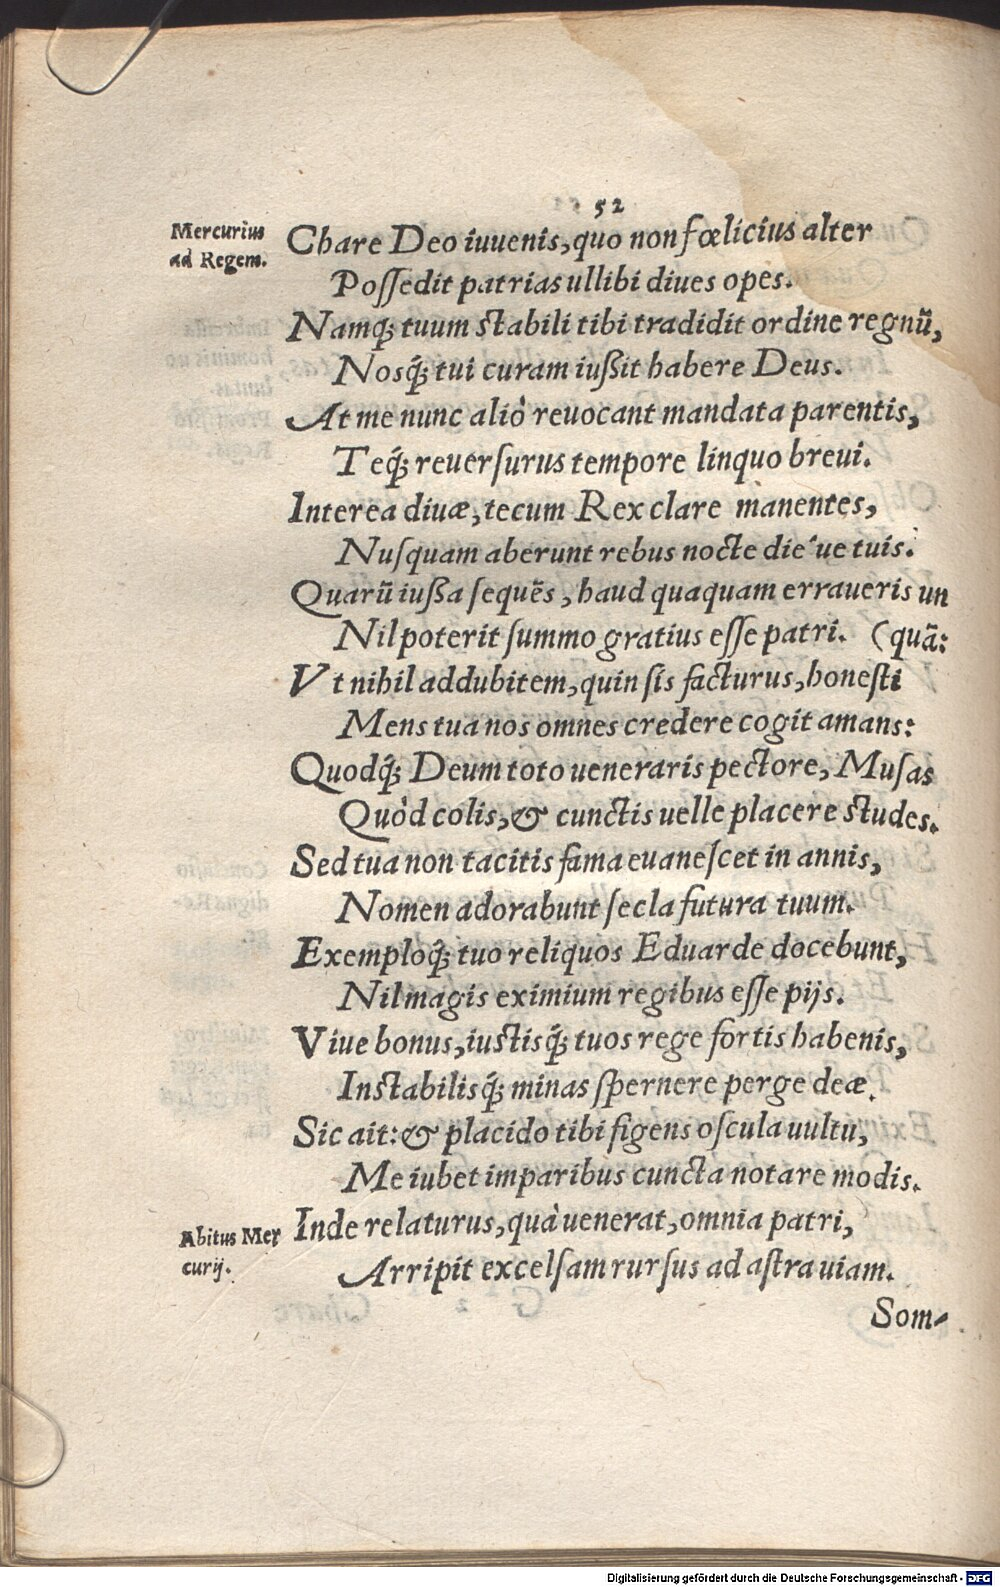 52
Mercurius
ad Regem.
Chare Deo iuuenis, quo non fœlicius alter
Possedit patrias ullibi diues opes.
Namq́; tuum stabili tibi tradidit ordine regnū,
Nosq́; tui curam iußit habere Deus.
At me nunc aliò reuocant mandata parentis,
Teq́; reuersurus tempore linquo breui.
Interea diuæ, tecum Rex clare manentes,
Nusquam aberunt rebus nocte die´ue tuis.
Quarū iußa sequēs, haud quaquam erraueris un
Nil poterit summo gratius esse patri. (quā:
Vt nihil addubitem, quin sis facturus, honesti
Mens tua nos omnes credere cogit amans:
Quodq́; Deum toto ueneraris pectore, Musas
Quòd colis, & cunctis uelle placere studes.
Sed tua non tacitis fama euanescet in annis,
Nomen adorabunt secla futura tuum.
Exemploq́; tuo reliquos Eduarde docebunt,
Nil magis eximium regibus esse pijs.
Viue bonus, iustisq́; tuos rege fortis habenis,
Instabilisq́; minas spernere perge deæ.
Sic ait: & placido tibi figens oscula uultu,
Me iubet imparibus cuncta notare modis.
Abitus Mer
curij.
Inde relaturus, quà uenerat, omnia patri,
Arripit excelsam rursus ad astra uiam.
Som-
Digitalisierung gefördert durch die Deutsche Forschungsgemeinschaft - DFG